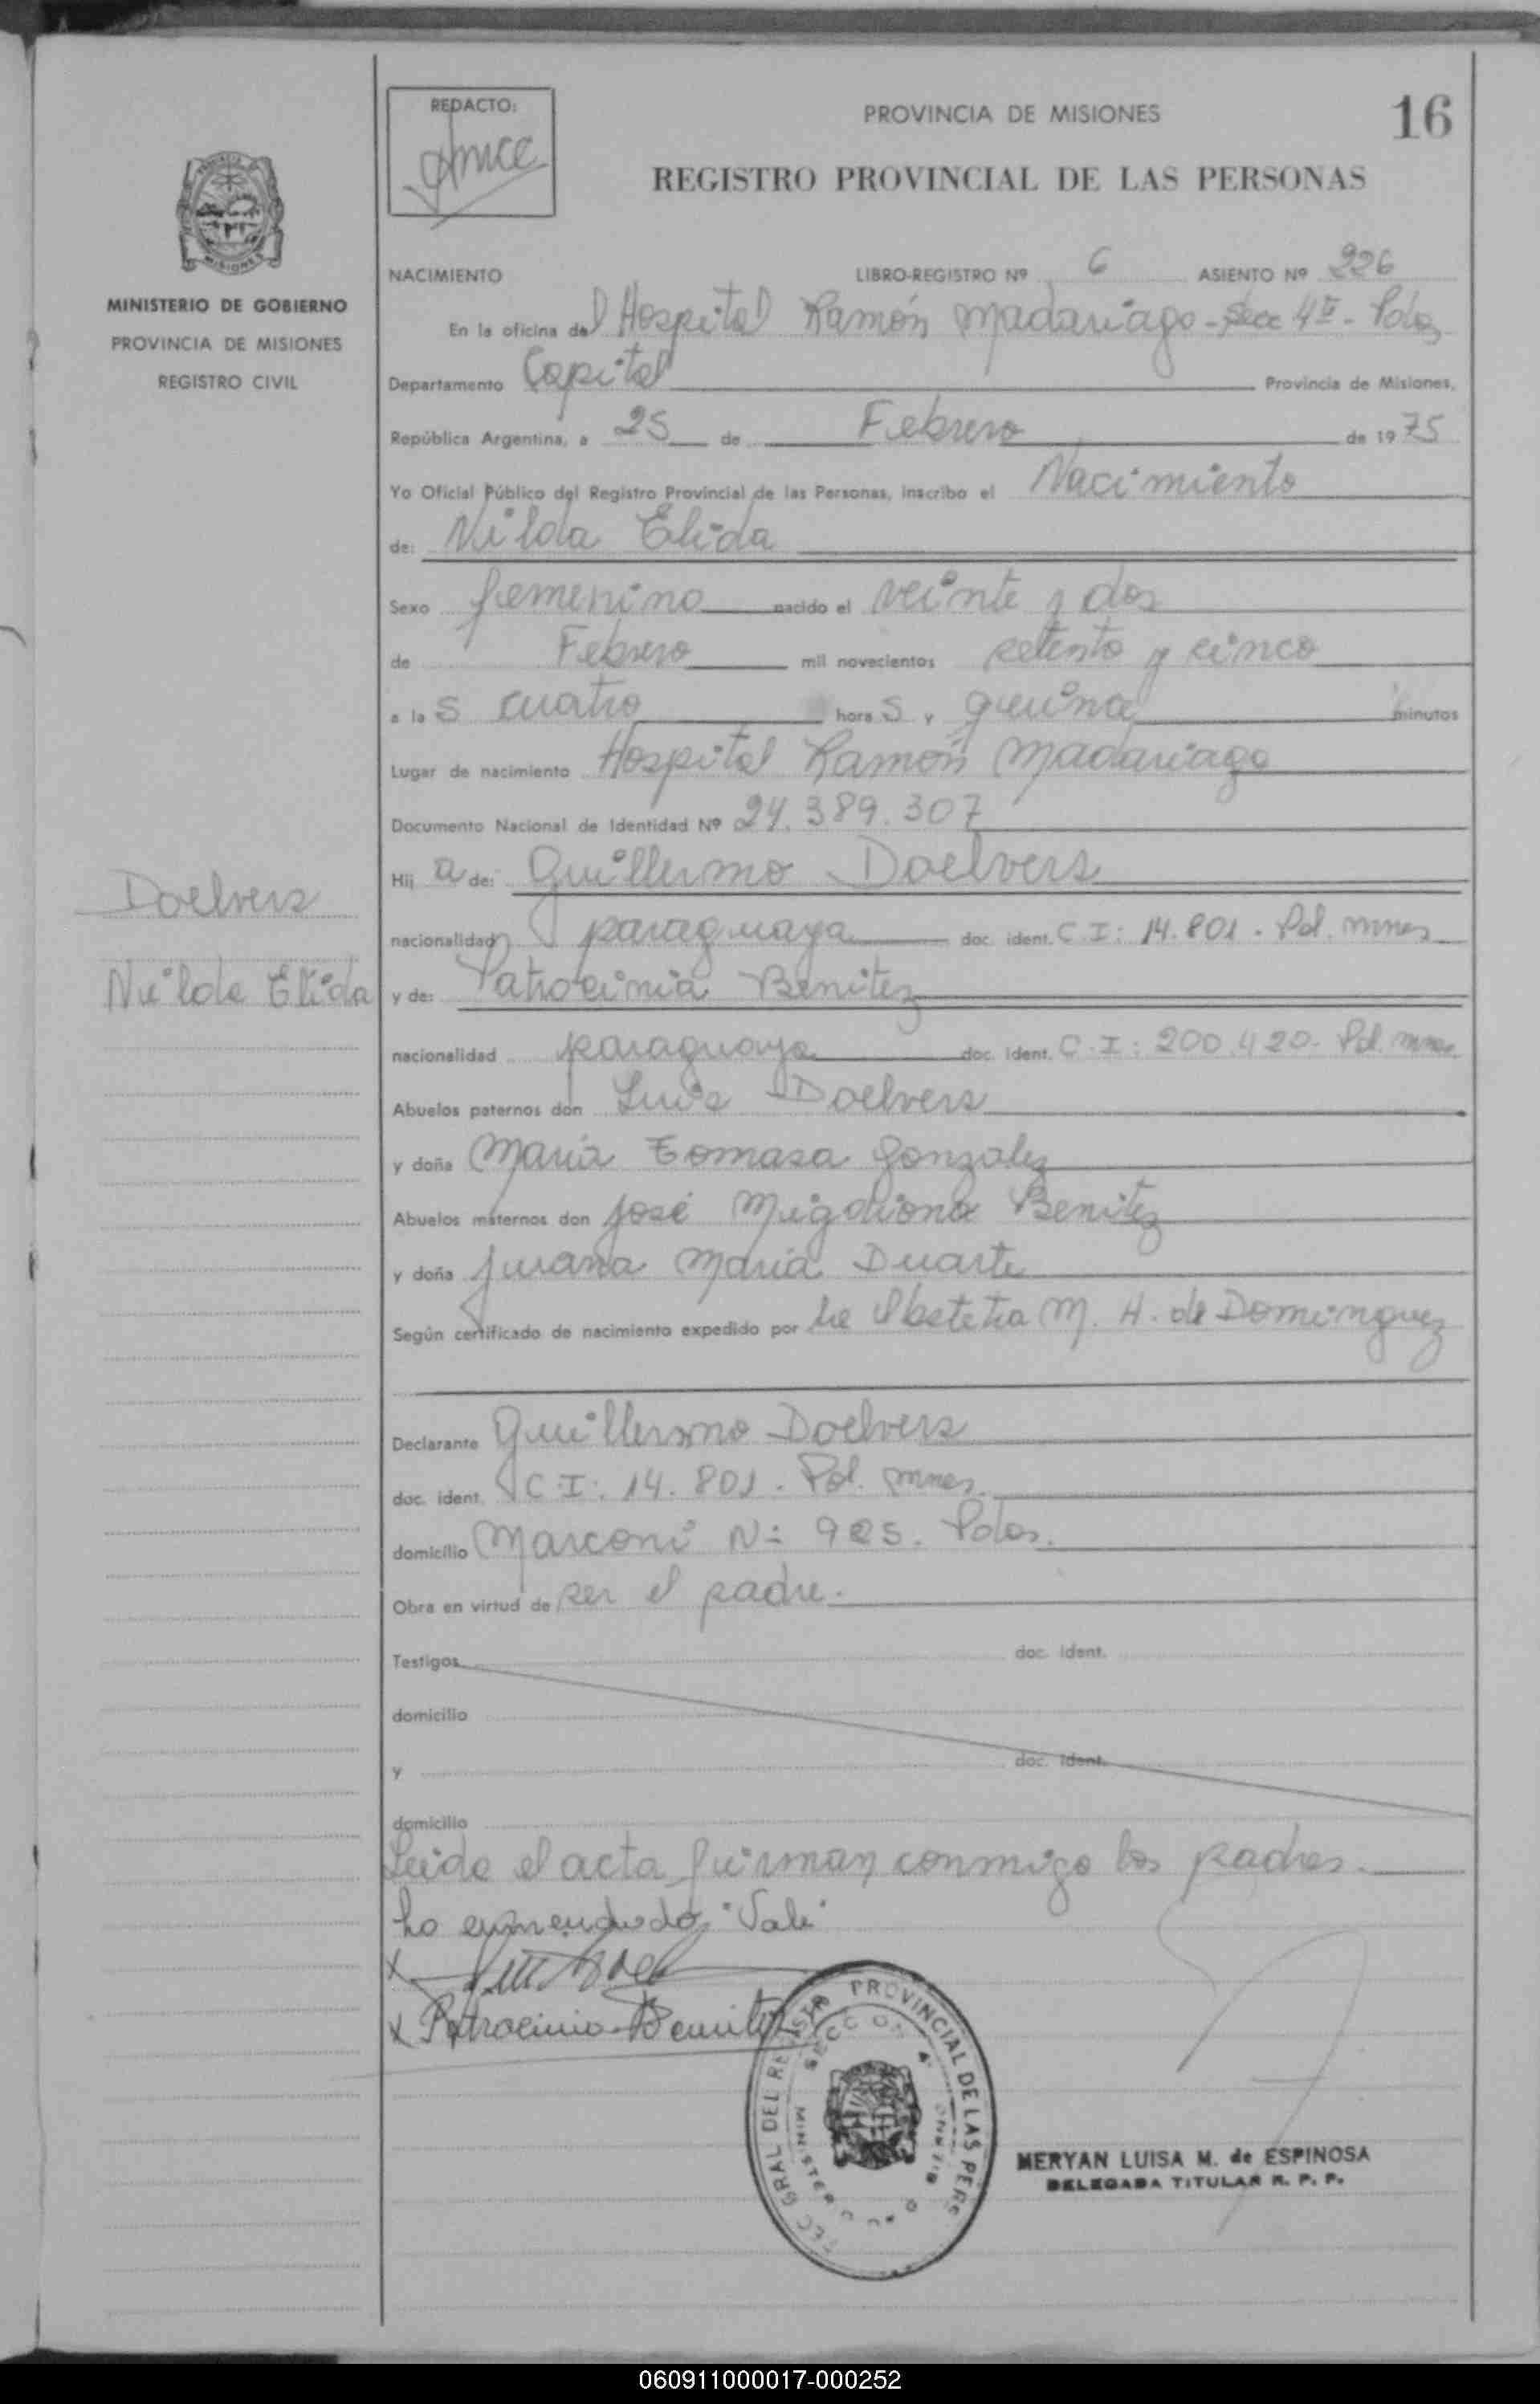 REDACTO:
PROVINCIA DE MISIONES
16
REGISTRO PROVINCIAL DE LAS PERSONAS
MISIONES
MINISTERIO DE GOBIERNO
PROVINCIA DE MISIONES
REGISTRO CIVIL
NACIMIENTO LIBRO-REGISTRO Nº 6 ASIENTO Nº 226
En la oficina del Hospital Ramón Madariaga - Secc 4ª - Pdas
Departamento Capital Provincia de Misiones,
República Argentina, a 25 de Febrero de 1975
Yo Oficial Público del Registro Provincial de las Personas, inscribo el Nacimiento
de: Nilda Elida
Sexo femenino nacido el veinte y dos
de Febrero mil novecientos setenta y cinco
a las cuatro horas y quince minutos
Lugar de nacimiento Hospital Ramón Madariaga
Documento Nacional de Identidad Nº 24.389.307
Hija de: Guillermo Doelvers
nacionalidad paraguaya doc. ident. C.I: 14.801 - Pol. mnes
y de: Patrocinia Benitez
nacionalidad paraguaya doc. ident. C.I: 200.420 - Pol. mnes
Abuelos paternos don Luis Doelvers
y doña Maria Tomasa Gonzalez
Abuelos maternos don José Migdonio Benitez
y doña Juana Maria Duarte
Según certificado de nacimiento expedido por la Obstetra M. H. de Dominguez
Declarante Guillermo Doelvers
doc. ident. C.I: 14.801 - Pol. mnes.
domicilio Marconi Nº 925. Pdas.
Obra en virtud de ser el padre.
Testigos doc. ident.
domicilio
y doc. ident.
domicilio
Leida el acta firman conmigo los padres.
Lo enmendado "Vale"
x
x Patrocinia Benitez
Doelvers
Nilda Elida
GRAL DEL REGISTRO PROVINCIAL DE LAS PERS
SECCION 4
MINISTERIO
MERYAN LUISA M. de ESPINOSA
DELEGADA TITULAR R. P. P.
060911000017-000252